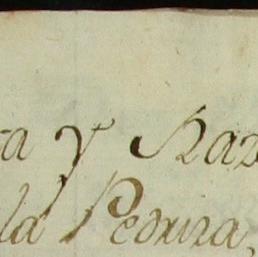 ta y Raz
la Pedriza,